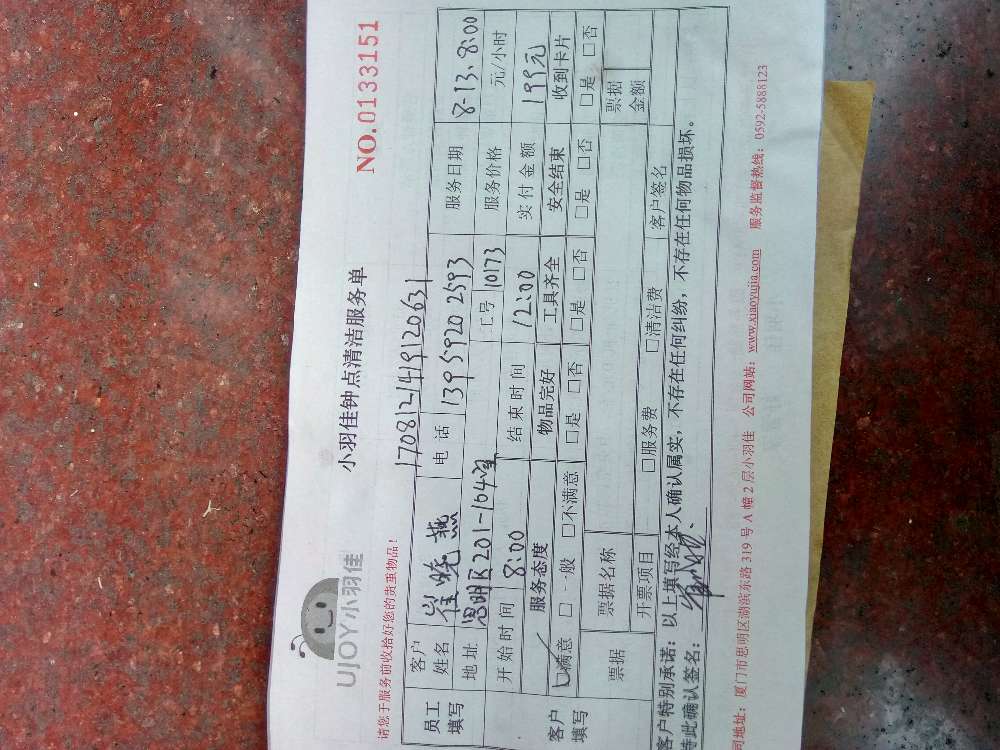 UJOY小羽佳
小羽佳钟点清洁服务单
NO.0133151
请您于服务前收拾好您的贵重物品!
1708121419120631
员工填写 客户姓名 崔晓燕 电话 13959202593 服务日期 8-13.8:00
地址 思明区201-104室 工号 10173 服务价格 元/小时
开始时间 8:00 结束时间 12:00 实付金额 199元
客户填写 服务态度 物品完好 工具齐全 安全结束 收到卡片
☑满意 □一般 □不满意 □是 □否 □是 □否 □是 □否 □是 □否
票据 票据名称 票据金额
开票项目 □服务费 □清洁费 客户签名
客户特别承诺:以上填写经本人确认属实,不存在任何纠纷,不存在任何物品损坏。
特此确认签名:
司地址:厦门市思明区湖滨东路319号A幢2层小羽佳 公司网站:www.xiaoyujia.com 服务监督热线:0592-5888123